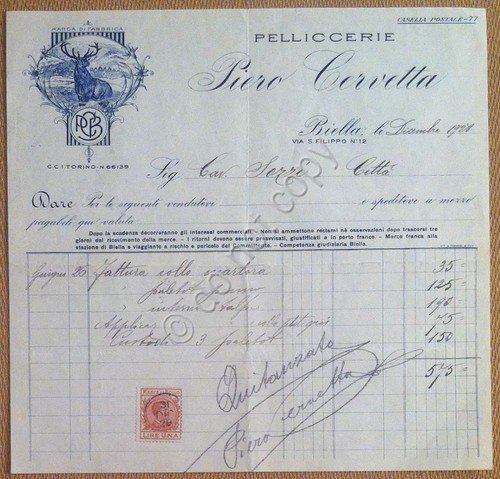 CASELLA POSTALE - 77
MARCA DI FABBRICA
PELLICCERIE
Piero Cervetta
PCB
Biella, li Dicembre
VIA S. FILIPPO Nº 12
C.C.I. TORINO - N. 66139
Sig Cav. Serri Città
Dare Per le seguenti vendutevi e speditevi a mezzo
pagabili qui valuta
Dopo la scadenza decorreranno gli interessi commerciali. - Non si ammettono reclami nè osservazioni dopo trascorsi tre
giorni dal ricevimento della merce. - I ritorni devono essere preavvisati, giustificati e in porto franco. - Merce franca alla
stazione di Biella e viaggiante a rischio e pericolo del Committente. - Competenza giudiziaria Biella.
Giugno 26 fattura collo martora 35 =
paletot 125 =
interno talpa 190 =
Applicaz collo 75 =
Custodia 3 paletot 150
575 =
Quitanzato
Piero Cervetta
LIRE UNA